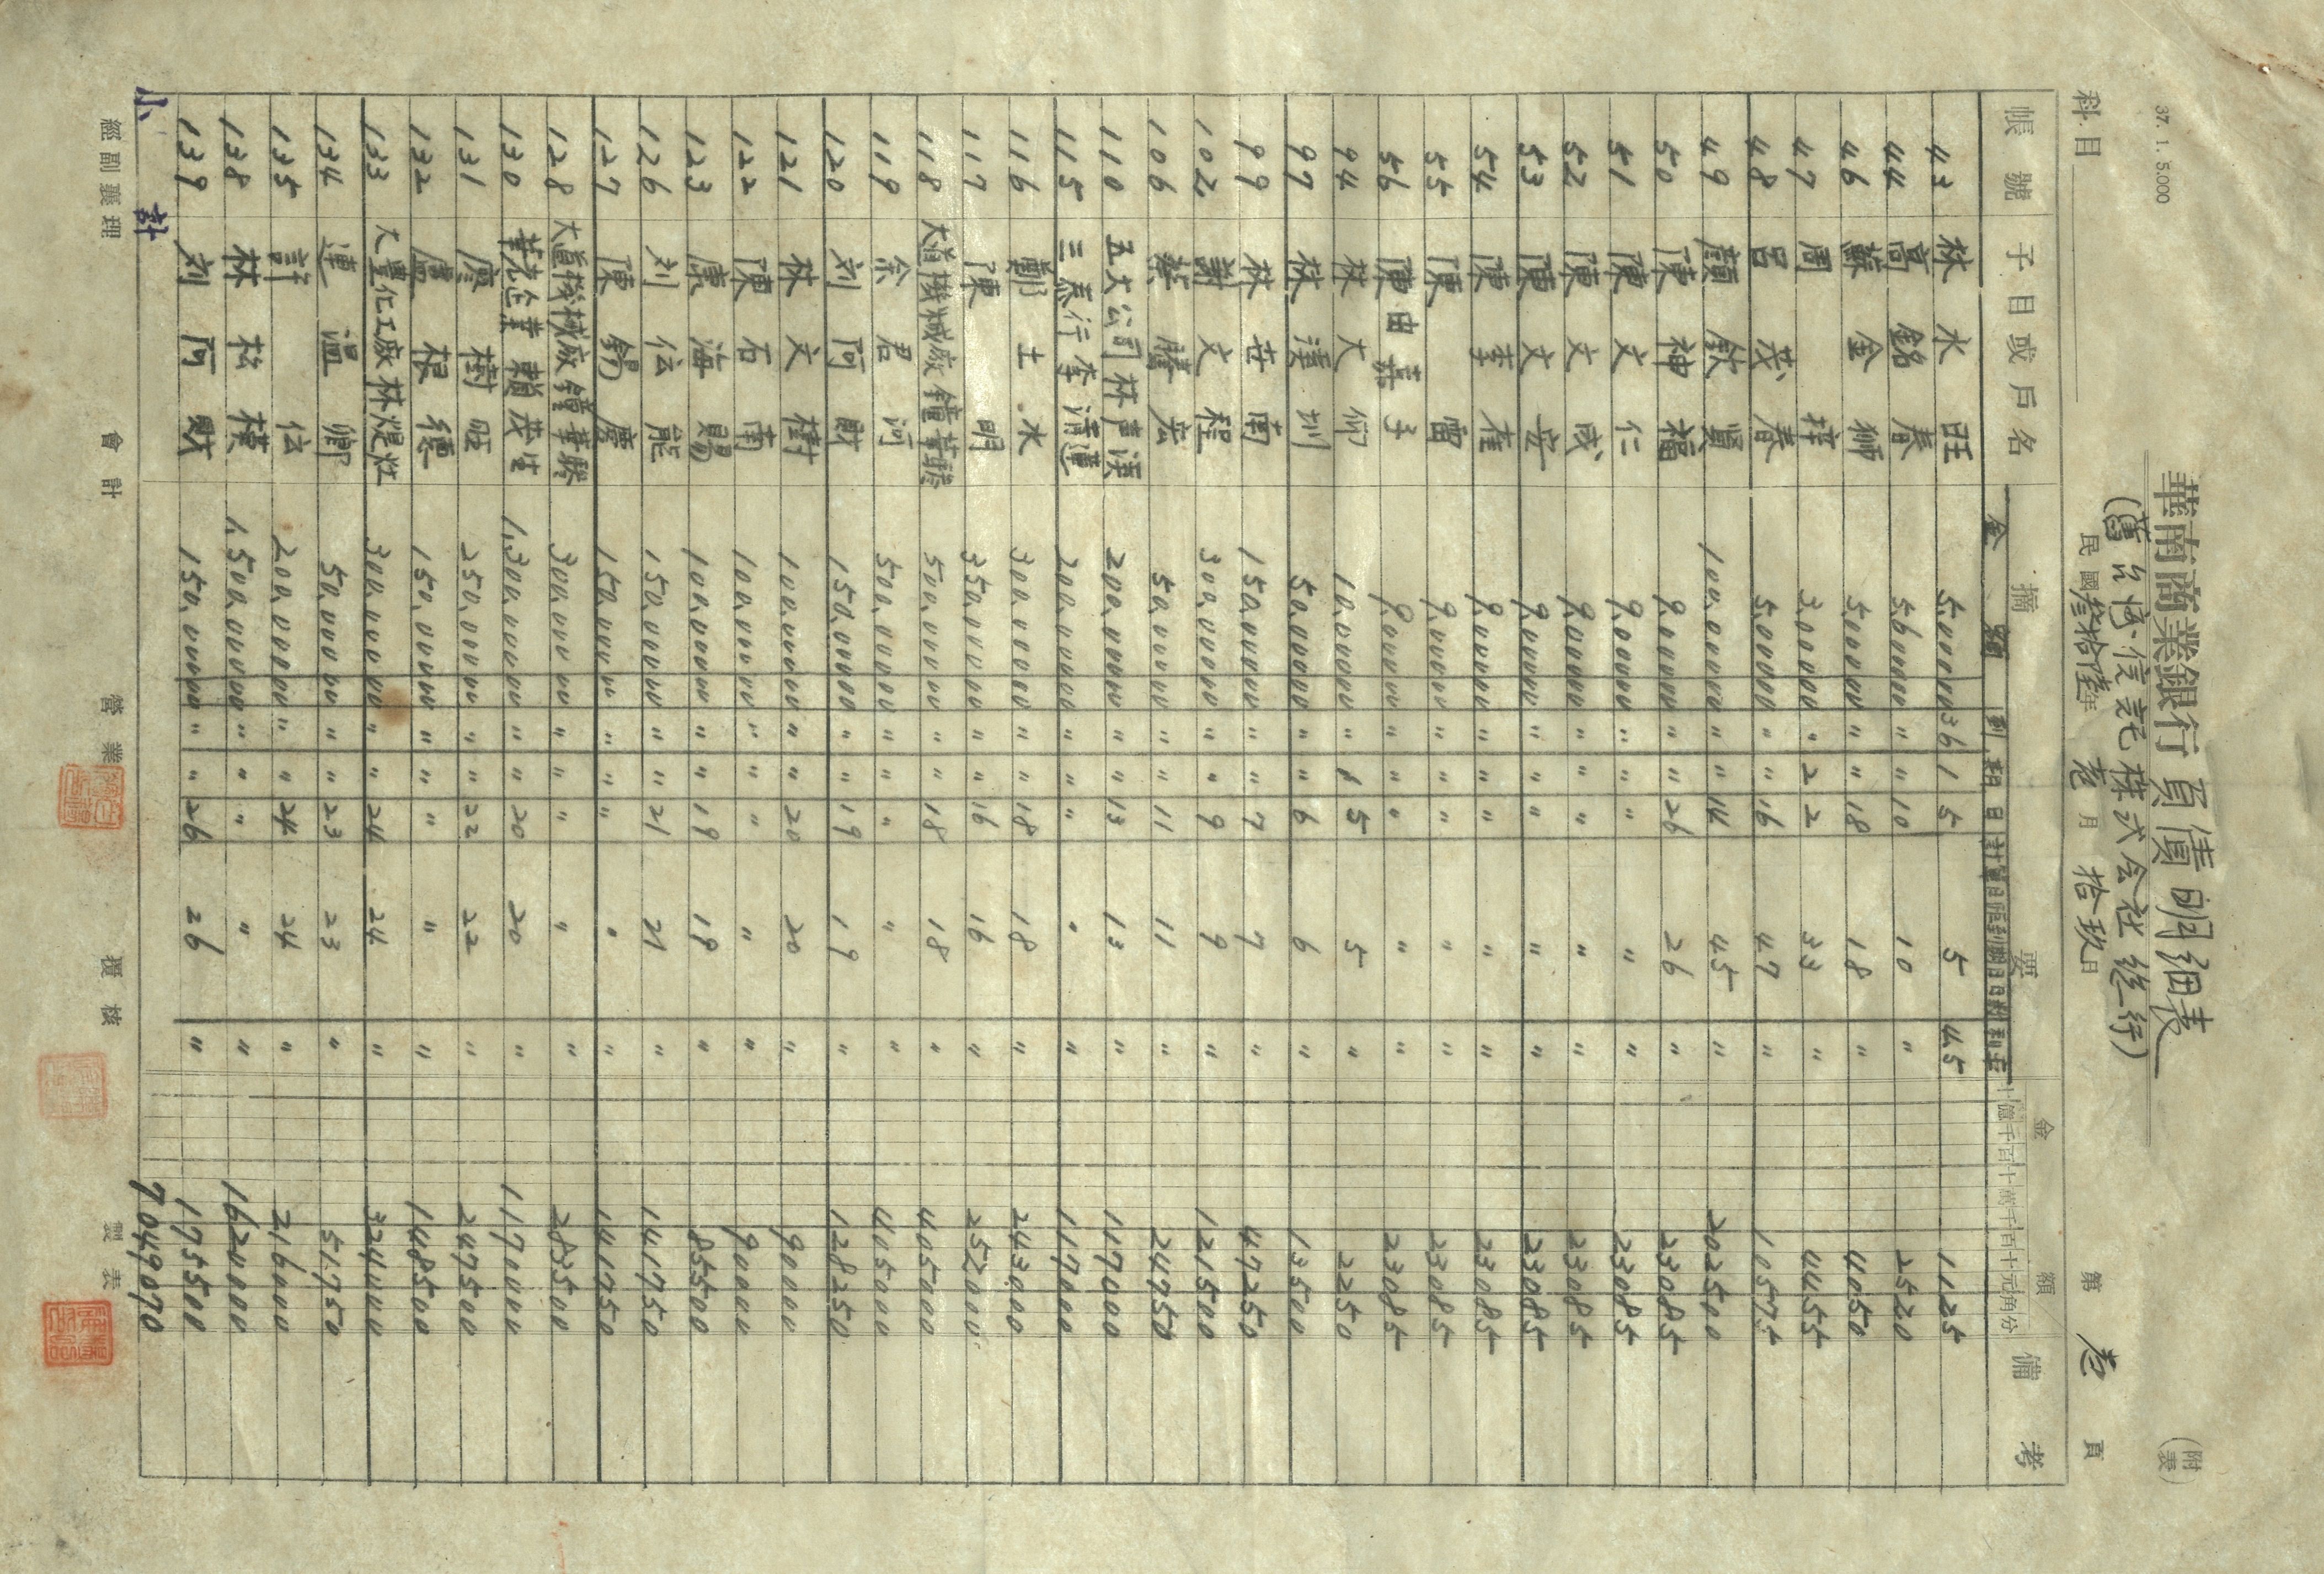 37. 1. 5.000
華南商業銀行 負債明細表
(附表)
(舊台湾信託株式会社総行)
科目
民國參拾陸年 壱月 拾玖日
第 壱 頁
帳號 子目或戶名 摘要 金額 備考
金額 到期日 計算日距到期日日數 利率 十億千百十萬千百十元角份
43 林水旺 5,000.00 36 1 5 5 4.5 11.25
44 高銘春 5,600.00 〃 〃 10 10 〃 25.20
46 蘇金獅 5,000.00 〃 〃 18 18 〃 40.50
47 周梓 3,000.00 〃 2 2 33 〃 44.55
48 呂茂春 5,000.00 〃 〃 16 47 〃 105.75
49 顏欽賢 100,000.00 〃 〃 14 45 〃 2025.00
50 陳神福 9,000.00 〃 〃 26 26 〃 230.85
51 陳文仁 9,000.00 〃 〃 〃 〃 〃 230.85
52 陳文成 9,000.00 〃 〃 〃 〃 〃 230.85
53 陳文安 9,000.00 〃 〃 〃 〃 〃 230.85
54 陳李桂 9,000.00 〃 〃 〃 〃 〃 230.85
55 陳雷 9,000.00 〃 〃 〃 〃 〃 230.85
56 陳由嘉子 9,000.00 〃 〃 〃 〃 〃 230.85
94 林大仰 10,000.00 〃 1 5 5 〃 22.50
97 林漢圳 50,000.00 〃 〃 6 6 〃 135.00
99 林世南 150,000.00 〃 〃 7 7 〃 472.50
102 謝文程 300,000.00 〃 〃 9 9 〃 1215.00
106 蔡騰宏 50,000.00 〃 〃 11 11 〃 247.50
110 五大公司林声漢 200,000.00 〃 〃 13 13 〃 1170.00
115 三泰行李清蓮 200,000.00 〃 〃 〃 〃 〃 1170.00
116 鄭土水 300,000.00 〃 〃 18 18 〃 2430.00
117 陳明 350,000.00 〃 〃 16 16 〃 2520.00
118 大道機械廠鐘華勝 500,000.00 〃 〃 18 18 〃 4050.00
119 余君河 500,000.00 〃 〃 〃 〃 〃 4050.00
120 刘阿財 150,000.00 〃 〃 19 19 〃 1282.50
121 林文樹 100,000.00 〃 〃 20 20 〃 900.00
122 陳石南 100,000.00 〃 〃 〃 〃 〃 900.00
123 康海賜 100,000.00 〃 〃 19 19 〃 855.00
126 刘伝能 150,000.00 〃 〃 21 21 〃 1417.50
127 陳錫慶 150,000.00 〃 〃 〃 〃 〃 1417.50
128 大道機械廠鐘華勝 300,000.00 〃 〃 〃 〃 〃 2835.00
130 華光企業賴茂生 1,300,000.00 〃 〃 20 20 〃 11700.00
131 廖樹旺 250,000.00 〃 〃 22 22 〃 2475.00
132 盧根德 150,000.00 〃 〃 〃 〃 〃 1485.00
133 大豐化工廠林焜灶 300,000.00 〃 〃 24 24 〃 3240.00
134 連溫卿 50,000.00 〃 〃 23 23 〃 517.50
135 許伝 200,000.00 〃 〃 24 24 〃 2160.00
138 林松模 1,500,000.00 〃 〃 〃 〃 〃 16200.00
139 刘阿財 150,000.00 〃 〃 26 26 〃 1755.00
小計 70490.70
經副襄理 會計 營業 覆核 製表